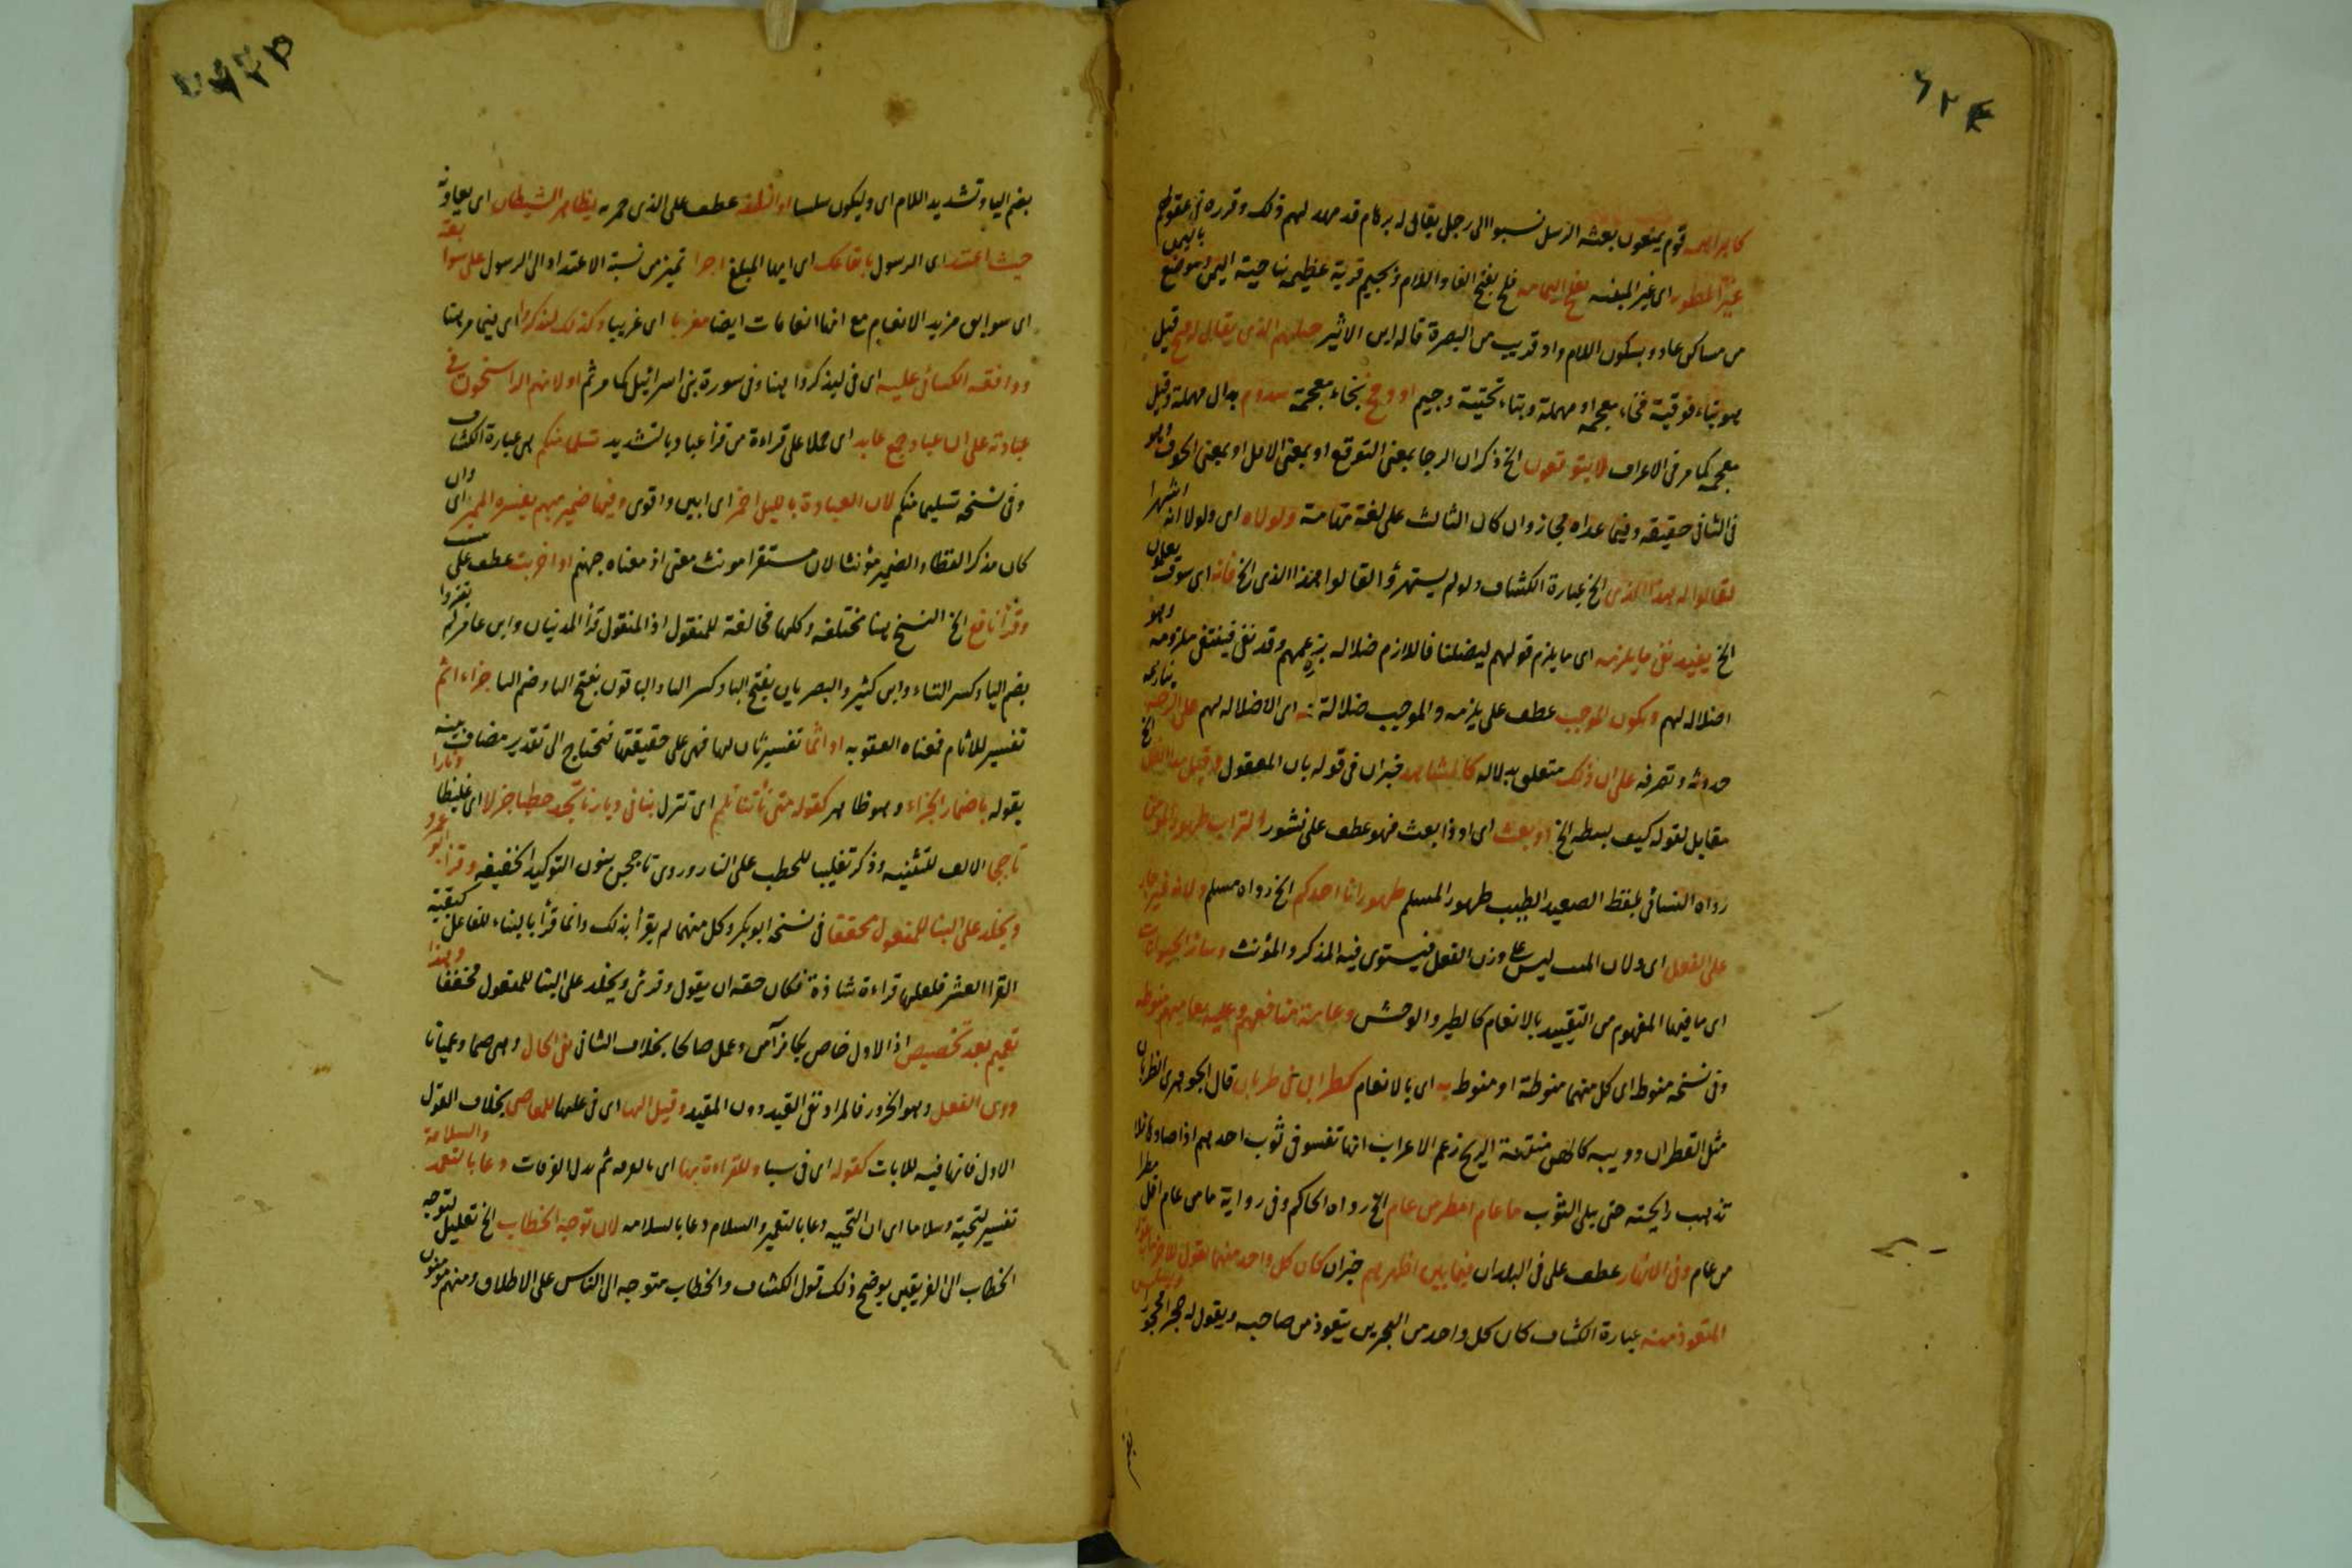 ٦٢٤
كالبراهمه قوم يمنعون بعثه الرسل نسبوا الى رجل يقال له برهام قد مهد لهم ذلك وقرره فى عقولهم
غير المطويه اى غير المبنيه بفلج اليمامه فلج بفتح الفاء واللام وبجيم قرية عظيمه بناحية اليمن وموضع باليمن
من مساكن عاد وبسكون اللام واد قريب من البصرة قاله ابن الاثير جبلهم الذى يقال له فتح قيل
هو بتاء فوقية فخاء معجمه او مهملة وبتاء تحتية وجيم او دمخ بخاء معجمة سدوم بدال مهملة وقيل
معجمه كما مر فى الاعراف لا يتوقعون الخ ذكر ان الرجا بمعنى التوقع او بمعنى الامل او بمعنى الخوف وهو
فى الثانى حقيقه وفيما عداه مجاز وان كان الثالث على لغة تهامة ولولاه اى ولولا انه استهزا
لقالوا اهذا الذى الخ عبارة الكشاف ولو لم يستهزؤا لقالوا اهذا الذى الخ فانه اى سوف يعلمون
الخ يفيد نفى ما يلزمه اى ما يلزم قولهم ليضلنا فاللازم ضلاله بزعمهم وقد نفى فينتفى ملزومه وهو
اضلاله لهم ويكون الموجب عطف على يلزمه والموجب ضلالة له اى الاضلاله لهم على
حدوثه وتصرفه على ان ذلك متعلق بدلاله كالمشاهد خبر ان فى قوله بان المعقول وقيل مد الظل الخ
مقابل لقوله كيف بسطه الخ او بعث اى او ذا بعث فهو عطف على نشور التراب طهور المؤمن
رواه النسائى بلفظ الصعيد الطيب طهور المسلم طهور اناء احدكم الخ رواه مسلم ولانه غير جار
على الفعل اى ولان الميت ليس على وزن الفعل فيستوى فيه المذكر والمؤنث وسائر الحيوانات
اى ما فيها المفهوم من التقييد بالانعام كالطير والوحش وعامة منافعهم وعليه معايشهم منوطه
وفى نسخه منوط اى كل منهما منوطة او منوط به اى بالانعام كظرابى فى ظربان قال الجوهرى الظربان
مثل القطران دويبه كالهره منتنة الريح زعم الاعراب انها تفسو فى ثوب احدهم اذا صادها فلا
تذهب رايحته حتى يبلى الثوب ما عام امطر من عام الخ رواه الحاكم وفى رواية ما من عام اقل مطرا
من عام وفى الانهار عطف على فى البلدان فيما بين اظهرهم خبر ان كان كل واحد منهما يقول للاخر ما يقوله
المتعوذ منه عبارة الكشاف كان كل واحد من البحرين يتعوذ من صاحبه ويقول له حجرا محجورا
بضم الياء وتشديد اللام اى وليكون سلسا او انظفه عطف على الذى حمر به يظاهر الشيطان اى يعاونه
حيث اعتد اى الرسول بانفاعك اى ايها المبلغ اجرا تميز من نسبة الاعتداد الى الرسول على سوابقه
اى سوابق مزيد الانعام مع انها انعامات ايضا مغربا اى غريبا وكذلك ليذكروا اى فيما مر هنا
ووافقه الكسائى عليه اى فى ليذكروا هنا وفى سورة بنى اسرائيل كما مر ثم اولانهم الراسخون فى
عبادته على ان عباد جمع عابد اى حملا على قراءة من قرأ عباد بالتشديد تسلما منكم هى عبارة الكشاف
وفى نسخه تسليما منكم لان العبادة بالليل احمز اى ابين واقوى وفيها ضمير مبهم يفسره المميز اى وان
كان مذكرا لفظا والضمير مؤنثا لان مستقرا مونث معنى اذ معناه جهنم او اخربت عطف على
وقرأ نافع الخ النسخ هنا مختلفه وكلها مخالفة للمنقول اذ المنقول قرأ المدنيان وابن عامر لم يقتروا
بضم الياء وكسر التاء وابن كثير والبصريان بفتح الياء وكسر التاء والباقون بفتح الياء وضم التاء جزاء اثم
تفسير للاثام فمعناه العقوبه او اثما تفسير ثان لها فهى على حقيقتها فتحتاج الى تقدير مضاف بينه
بقوله باضمار الجزاء وهو ظاهر كقوله متى تأتنا تلمم اى تنزل بنا فى ديارنا تجد حطبا جزلا اى غليظا ونارا
تأججا الالف للتثنيه وذكر تغليبا للحطب على النار وروى تاججن بنون التوكيد الخفيفه وقرأ ابو عمرو
ويخلد على البنا للمفعول مخففا فى نسخه ابو بكر وكل منهما لم يقرأ بذلك وانما قرأ بالبناء للفاعل كبقية
القرا العشر فلعلها قراءة شاذة فكان حقه ان يقول وقرئ ويخلد على البنا للمفعول مخففا وهذا
تعميم بعد تخصيص اذ الاول خاص بكافر آمن وعمل صالحا بخلاف الثانى نفى الحال وهى صما وعميانا
دون الفعل وهو الخرور فالمراد نفى القيد دون المقيد وقيل الهاء اى فى عليها للمعاصى بخلاف القول
الاول فانها فيه للايات كقوله اى فى سبا وللقراءة بها اى بالغرفه ثم بدل الغرفات دعا بالتعمير والسلامة
تفسير لتحية وسلاما اى ان التحيه دعا بالتعمير والسلام دعا بالسلامه لان توجه الخطاب الخ تعليل لتوجه
الخطاب الى الفريقين يوضح ذلك قول الكشاف والخطاب متوجه الى الناس على الاطلاق ومنهم مومنون